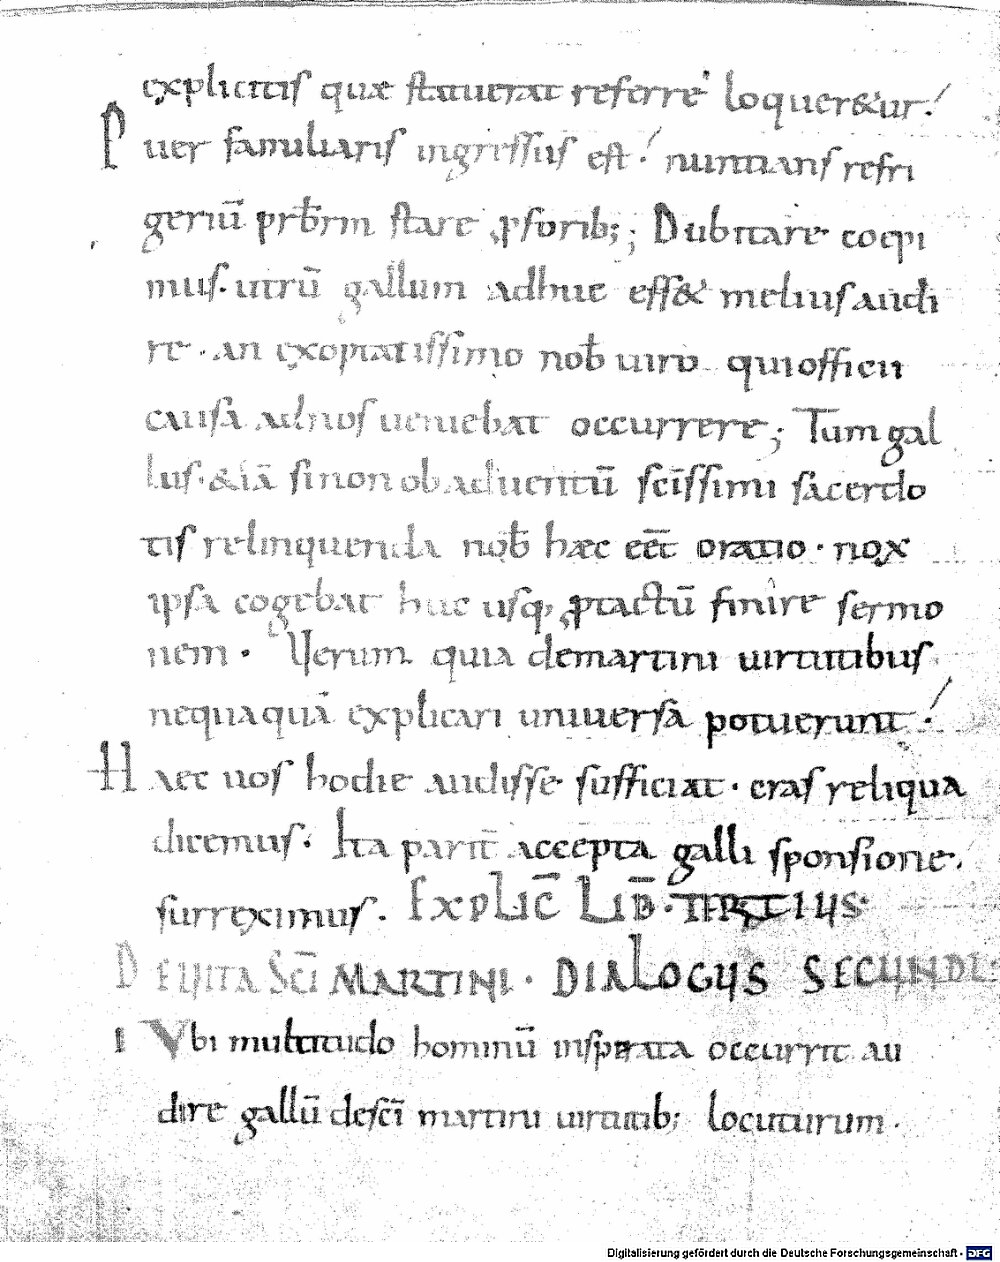 explicitis quæ statuerat referre loquer&ur.
Puer familiaris ingressus est. nuntians refri
geriū prb̄rm stare ꝓ forib; ; Dubitare coepi
mus. utrū gallum adhuc ess& melius audi
re . an exoptatissimo nob̄ uiro qui officii
causa ad nos ueniebat occurrere; Tum gal
lus. & iā si non ob aduentū sc̄issimi sacerdo
tis relinquenda nob̄ haec eēt oratio . nox
ipsa cogebat huc usq; ꝓtactū finire sermo
nem . Verum quia de martini uirtutibus
nequaquā explicari uniuersa potuerunt .
Haec uos hodie audisse sufficiat . cras reliqua
dicemus. Ita parit̄ accepta galli sponsione.
surreximus . EXPLIC̄ LIB̄ . TERTIUS.
DE UITA SC̄I MARTINI . DIALOGUS SECUNDI:
I Vbi multitudo hominū insperata occurrit au
dire gallū de sc̄i martini uirtutib; locuturum .
Digitalisierung gefördert durch die Deutsche Forschungsgemeinschaft - DFG